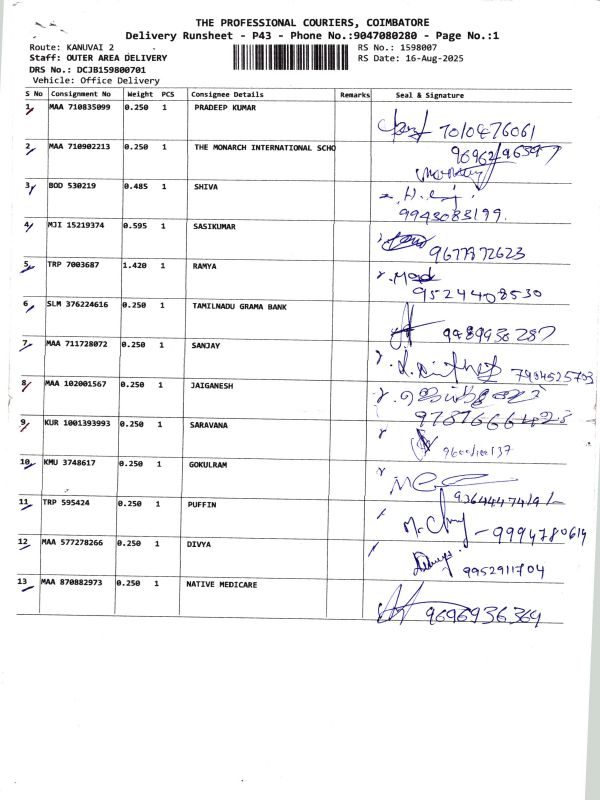 THE PROFESSIONAL COURIERS, COIMBATORE
Delivery Runsheet - P43 - Phone No.:9047080280 - Page No.:1
Route: KANUVAI 2 RS No.: 1598007
Staff: OUTER AREA DELIVERY RS Date: 16-Aug-2025
DRS No.: DCJB159800701
Vehicle: Office Delivery
S No Consignment No Weight PCS Consignee Details Remarks Seal & Signature
1 MAA 710835099 0.250 1 PRADEEP KUMAR
7010476061
2 MAA 710902213 0.250 1 THE MONARCH INTERNATIONAL SCHO
3 BOD 530219 0.485 1 SHIVA
9943083199.
4 MJI 15219374 0.595 1 SASIKUMAR
9677872623
5 TRP 7003687 1.420 1 RAMYA
9524408530
6 SLM 376224616 0.250 1 TAMILNADU GRAMA BANK
9489930287
7 MAA 711728072 0.250 1 SANJAY
8 MAA 102001567 0.250 1 JAIGANESH
9 KUR 1001393993 0.250 1 SARAVANA
10 KMU 3748617 0.250 1 GOKULRAM
11 TRP 595424 0.250 1 PUFFIN
9994780614
12 MAA 577278266 0.250 1 DIVYA
9952911704
13 MAA 870882973 0.250 1 NATIVE MEDICARE
9696936369